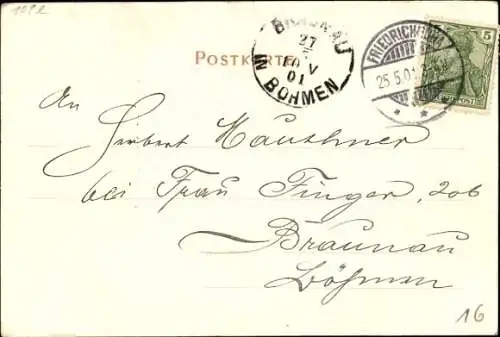 POSTKARTE
BRAUNAU
27
5
V
01
IN BÖHMEN
25.5.01
5
An
Herbert Mauthner
bei Frau Finger, 206
Braunau
Böhmen
16